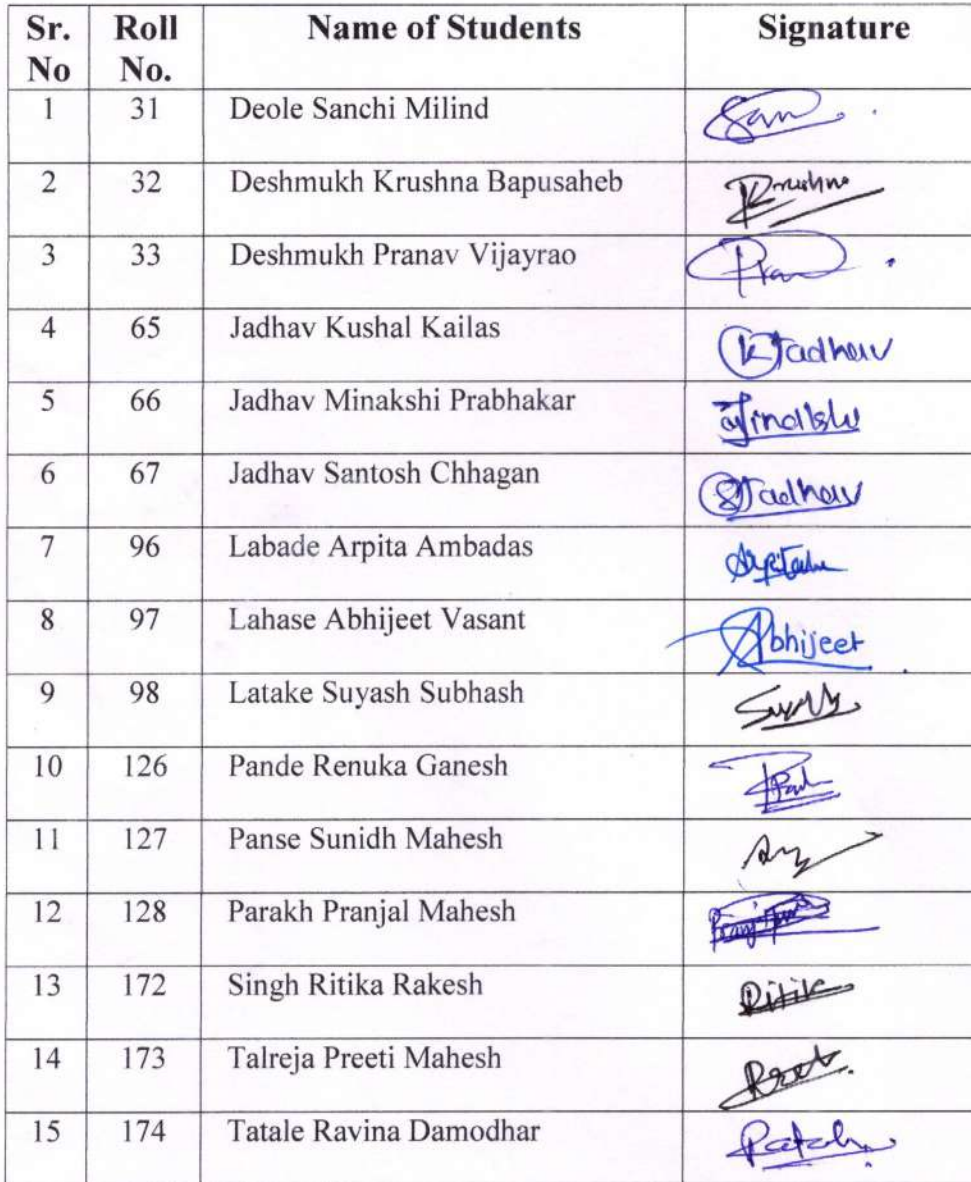 Sr. No Roll No. Name of Students Signature
1 31 Deole Sanchi Milind San
2 32 Deshmukh Krushna Bapusaheb Krushna
3 33 Deshmukh Pranav Vijayrao Pran
4 65 Jadhav Kushal Kailas KJadhav
5 66 Jadhav Minakshi Prabhakar
6 67 Jadhav Santosh Chhagan SJadhav
7 96 Labade Arpita Ambadas
8 97 Lahase Abhijeet Vasant Abhijeet
9 98 Latake Suyash Subhash
10 126 Pande Renuka Ganesh
11 127 Panse Sunidh Mahesh
12 128 Parakh Pranjal Mahesh
13 172 Singh Ritika Rakesh Ritik
14 173 Talreja Preeti Mahesh
15 174 Tatale Ravina Damodhar